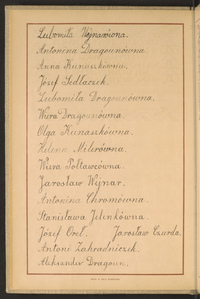 Lubomiła Wajnarówna.
Antonina Dragounówna
Anna Kunaszkówna,
Józef Sedlaczek.
Lubomiła Dragounówna.
Wiera Dragounówna.
Olga Kunaszkówna.
Helena Melerówna.
Wiera Foltawcówna.
Jarosław Wajnar.
Antonina Chromówna.
Stanisława Jelinkówna.
Józef Orel. Jarosław Czurda.
Antoni Zahradniczek.
Aleksander Dragoun.